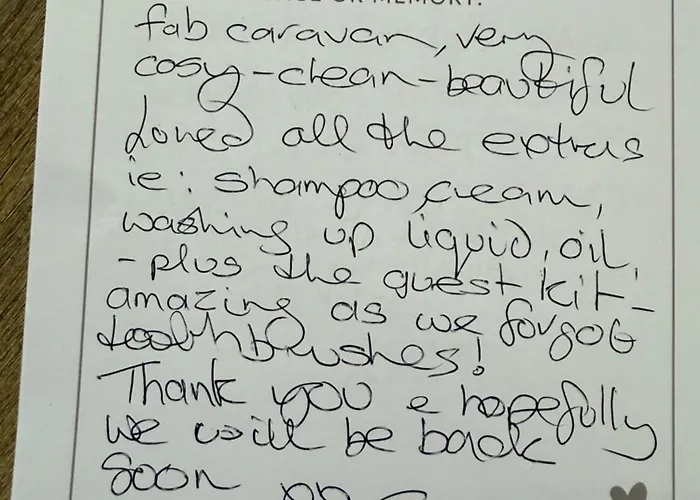 OR MEMORY:
fab caravan, very
cosy-clean-beautiful
Loved all the extras
ie: shampoo, cream,
washing up liquid, oil,
-plus the guest kit-
amazing as we forgot
toothbrushes!
Thank you & hopefully
we will be back
soon